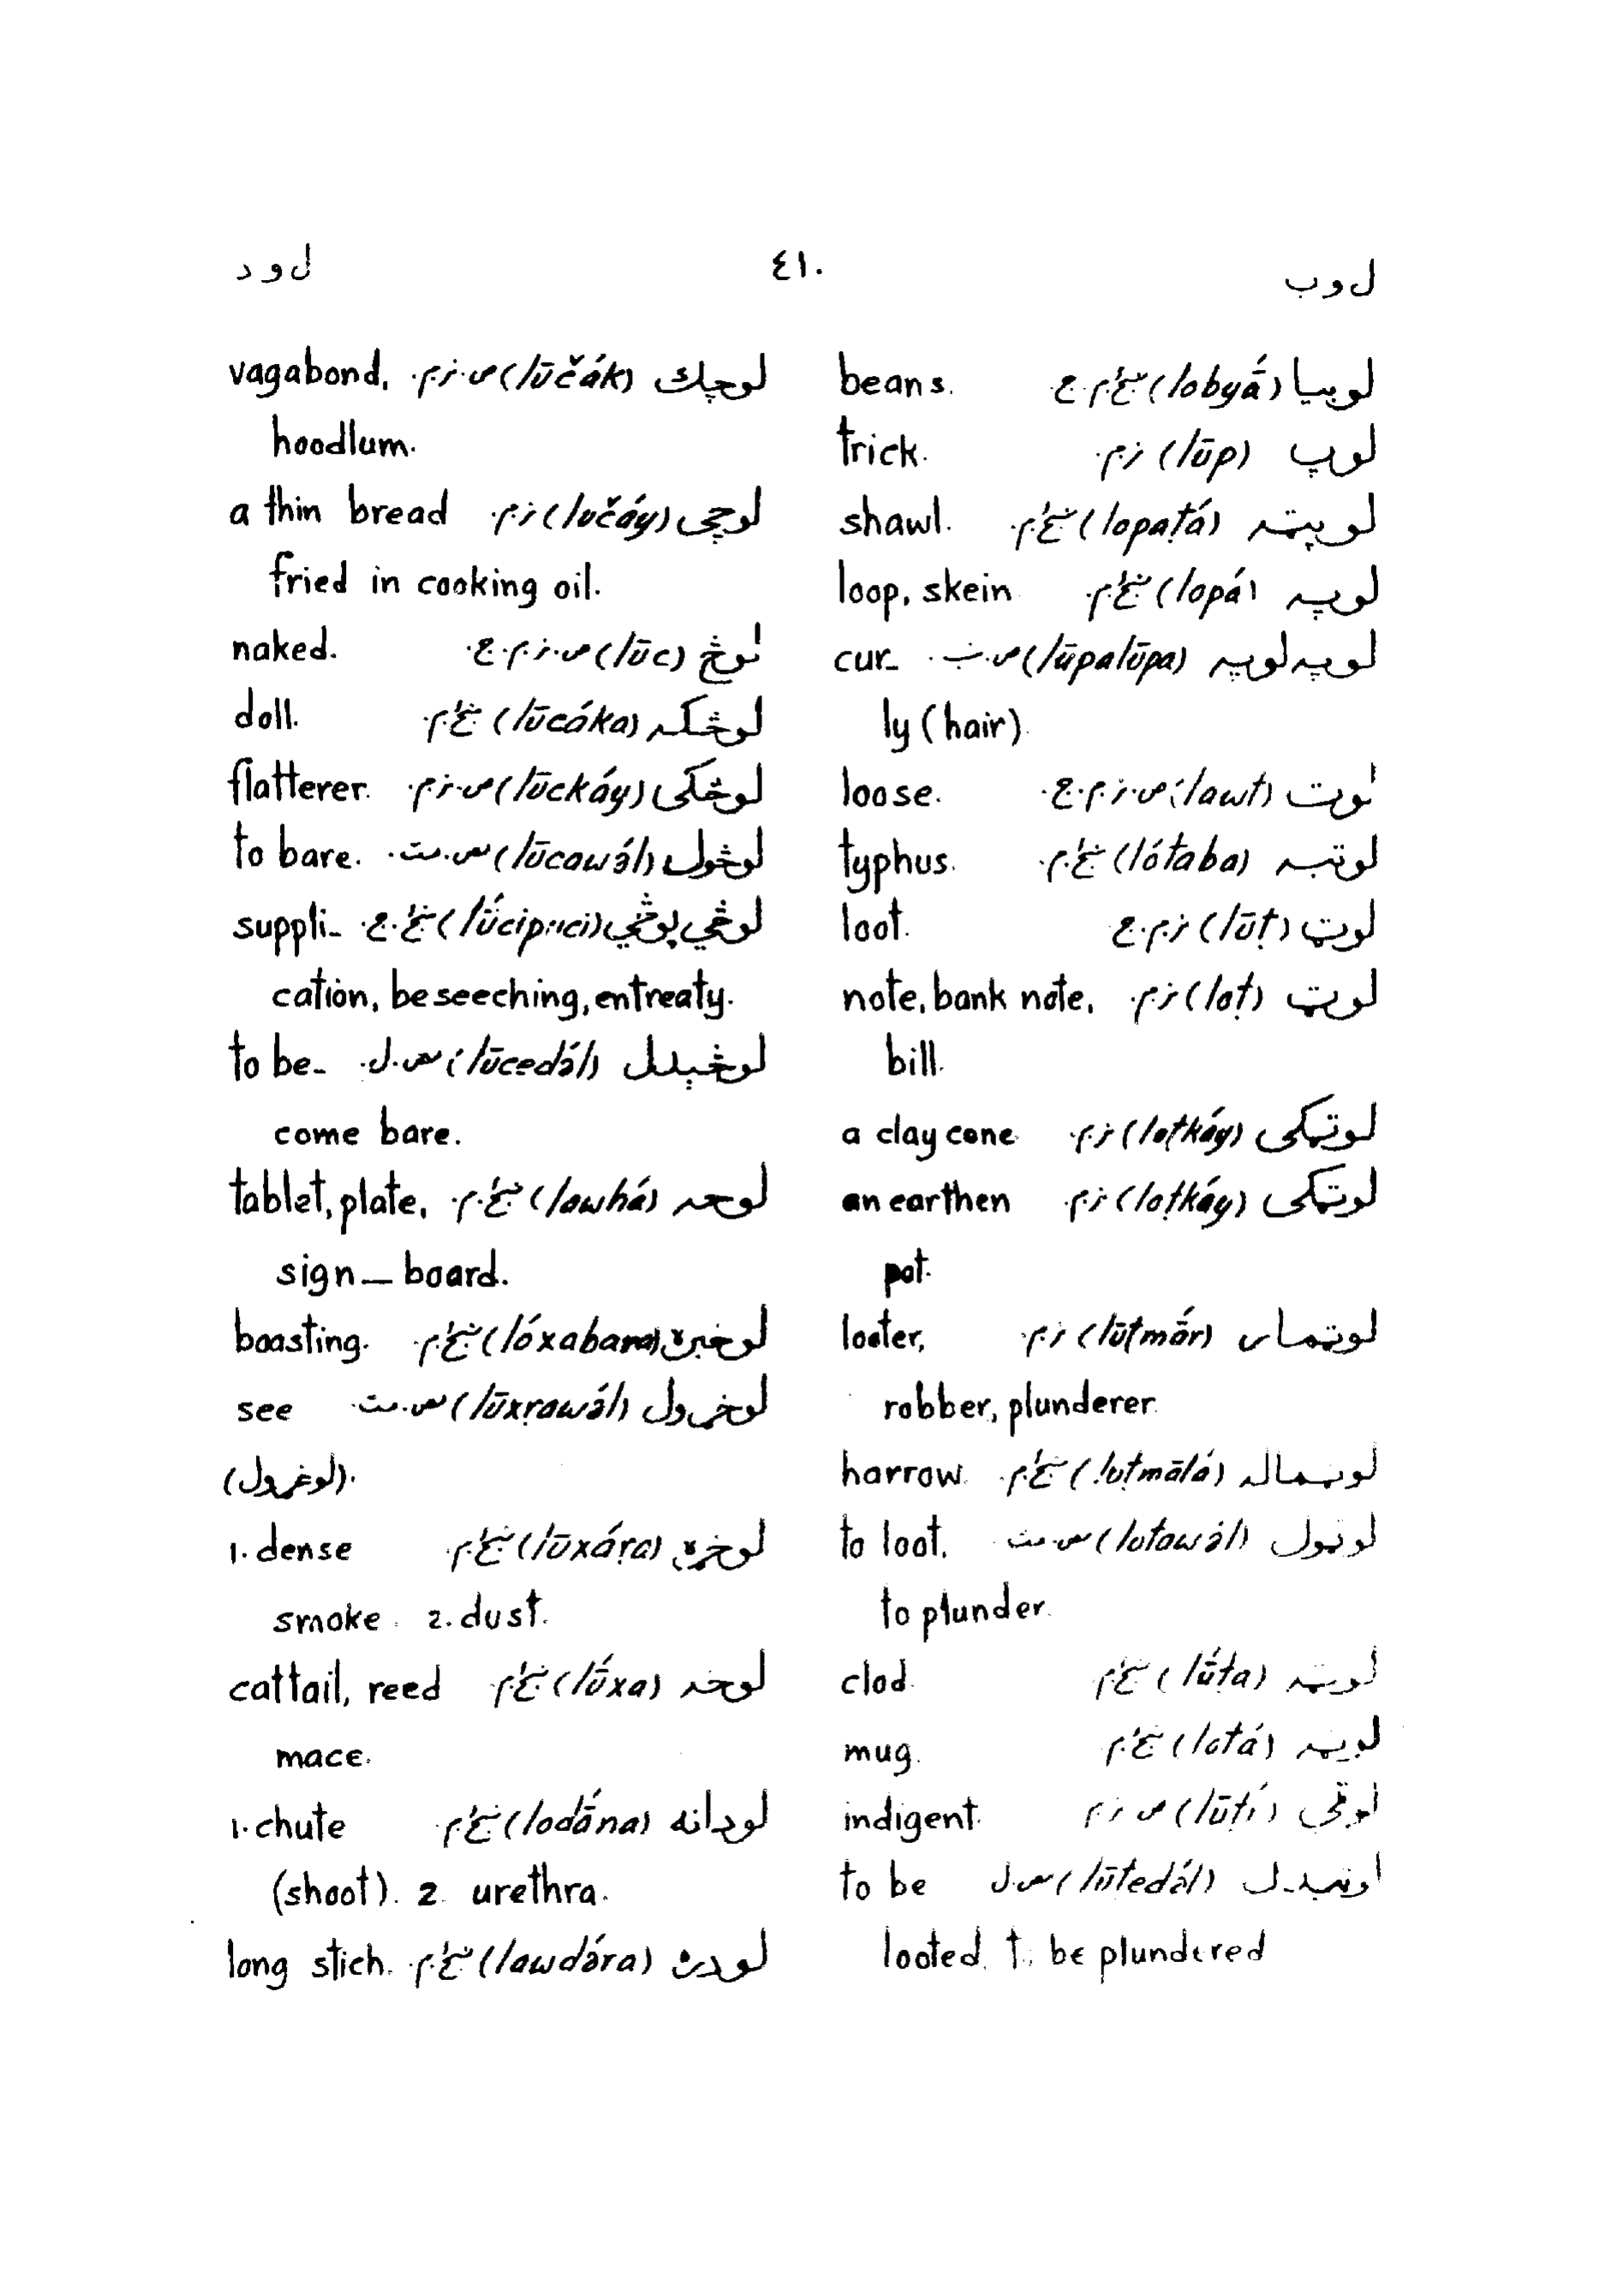 ل و ب ٤١٠ ل و د
لوبيا (lobyā́) ښځ.م.ج. beans.
لوپ (lūp) نر.م. trick.
لوپټه (lopaṭá) ښځ.م. shawl.
لوپه (lopá) ښځ.م. loop, skein
لوپه لوپه (lūpalūpa) ص.ښ. cur-
ly (hair).
لوت (lawt) ص.نر.م.ج. loose.
لوتبه (lótaba) ښځ.م. typhus.
لوټ (lūṭ) نر.م.ج. loot.
لوټ (loṭ) نر.م. note, bank note,
bill.
لوټکی (loṭkáy) نر.م. a clay cone
لوټکی (loṭkáy) نر.م. an earthen
pot.
لوټمار (lūṭmā́r) نر.م. looter,
robber, plunderer.
لوټماله (luṭmālá) ښځ.م. harrow.
لوټول (loṭawə́l) مص.مت. to loot,
to plunder.
لوټه (lū́ṭa) ښځ.م. clod.
لوټه (loṭá) ښځ.م. mug.
لوټی (lūṭí) ص.نر.م. indigent.
لوټېدل (lūṭedə́l) مص.ل. to be
looted, to be plundered
لوچك (lūčák) ص.نر.م. vagabond,
hoodlum.
لوچی (lučáy) نر.م. a thin bread
fried in cooking oil.
لوڅ (lūc) ص.نر.م.ج. naked.
لوڅکه (lūcáka) ښځ.م. doll.
لوڅکی (lūckáy) ص.نر.م. flatterer.
لوڅول (lūcawə́l) مص.مت. to bare.
لوڅي پوڅي (lū́cipuci) ښځ.ج. suppli-
cation, beseeching, entreaty.
لوڅېدل (lūcedə́l) مص.ل. to be-
come bare.
لوحه (lawhá) ښځ.م. tablet, plate,
sign-board.
لوخبره (lóxabara) ښځ.م. boasting.
لوخړول (lūxṛawə́l) مص.مت. see
(لوغړول).
لوخړه (lūxáṛa) ښځ.م. 1. dense
smoke. 2. dust.
لوخه (lū́xa) ښځ.م. cattail, reed
mace.
لودانه (lodā́na) ښځ.م. 1. chute
(shoot). 2. urethra.
لودره (lawdə́ra) ښځ.م. long stich.